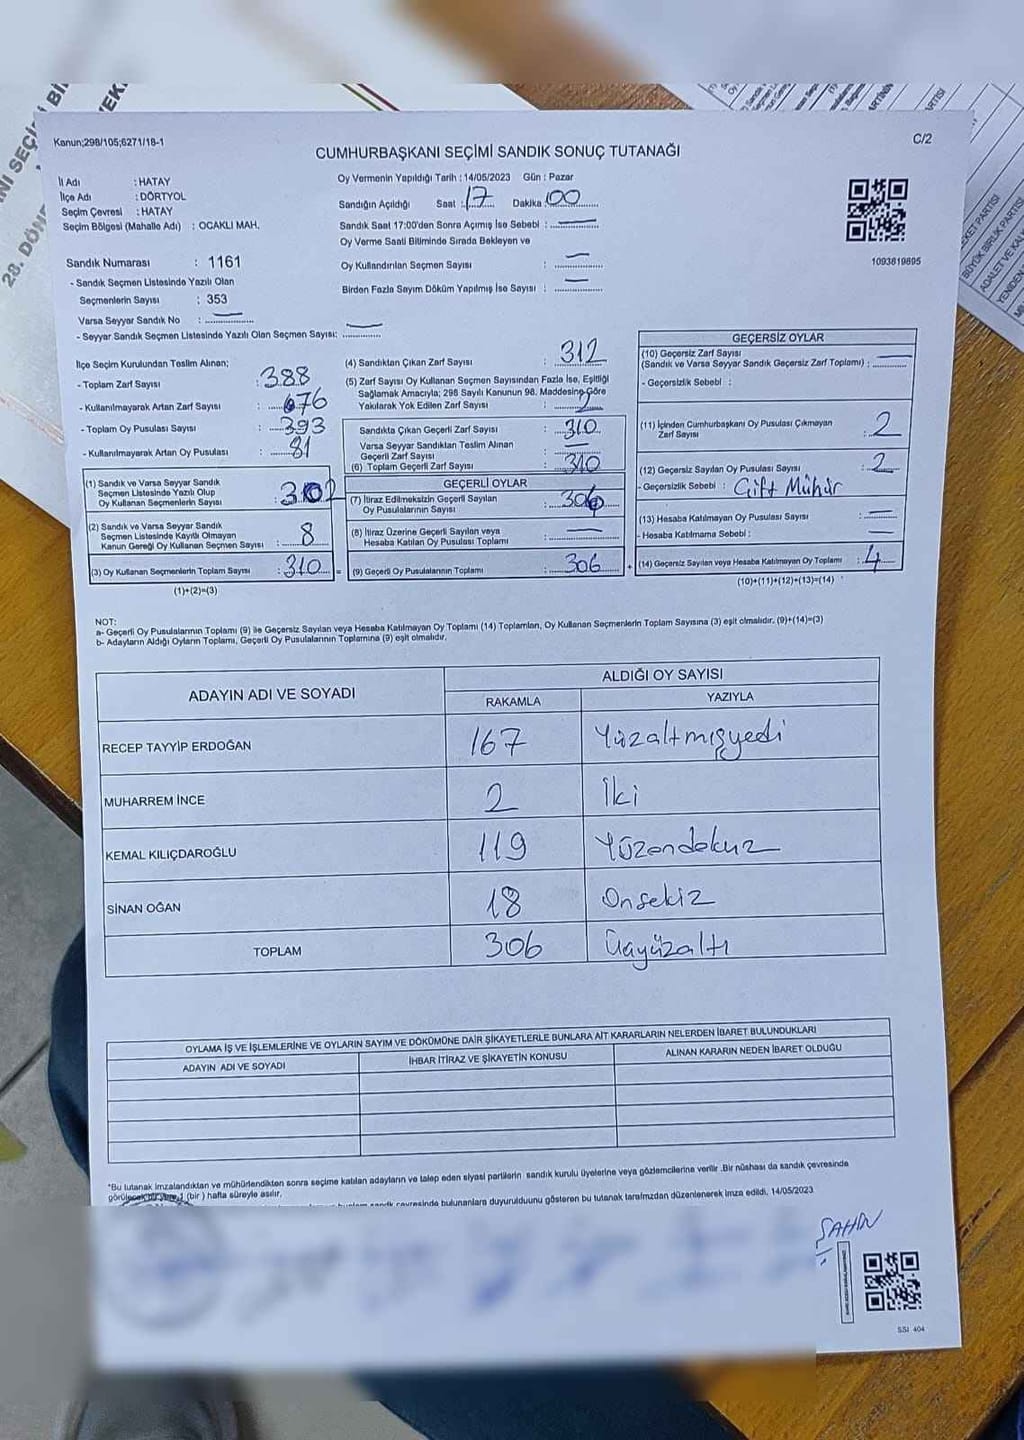 Kanun;298/105;6271/18-1
C/2
CUMHURBAŞKANI SEÇİMİ SANDIK SONUÇ TUTANAĞI
İl Adı : HATAY
İlçe Adı : DÖRTYOL
Seçim Çevresi : HATAY
Seçim Bölgesi (Mahalle Adı) : OCAKLI MAH.
Oy Vermenin Yapıldığı Tarih : 14/05/2023 Gün : Pazar
Sandığın Açıldığı Saat : 17 Dakika : 00
Sandık Saat 17:00'den Sonra Açımış İse Sebebi :
Oy Verme Saati Bitiminde Sırada Bekleyen ve
Oy Kullandırılan Seçmen Sayısı :
Birden Fazla Sayım Döküm Yapılmış İse Sayısı :
1093819895
Sandık Numarası : 1161
- Sandık Seçmen Listesinde Yazılı Olan
Seçmenlerin Sayısı : 353
Varsa Seyyar Sandık No :
- Seyyar Sandık Seçmen Listesinde Yazılı Olan Seçmen Sayısı:
İlçe Seçim Kurulundan Teslim Alınan;
- Toplam Zarf Sayısı : 388
- Kullanılmayarak Artan Zarf Sayısı : 76
- Toplam Oy Pusulası Sayısı : 393
- Kullanılmayarak Artan Oy Pusulası : 81
(1) Sandık ve Varsa Seyyar Sandık
Seçmen Listesinde Yazılı Olup
Oy Kullanan Seçmenlerin Sayısı : 302
(2) Sandık ve Varsa Seyyar Sandık
Seçmen Listesinde Kayıtlı Olmayan
Kanun Gereği Oy Kullanan Seçmen Sayısı : 8
(3) Oy Kullanan Seçmenlerin Toplam Sayısı : 310
(1)+(2)=(3)
(4) Sandıktan Çıkan Zarf Sayısı : 312
(5) Zarf Sayısı Oy Kullanan Seçmen Sayısından Fazla İse, Eşitliği
Sağlamak Amacıyla; 298 Sayılı Kanunun 98. Maddesine Göre
Yakılarak Yok Edilen Zarf Sayısı : 2
Sandıkta Çıkan Geçerli Zarf Sayısı : 310
Varsa Seyyar Sandıktan Teslim Alınan
Geçerli Zarf Sayısı :
(6) Toplam Geçerli Zarf Sayısı : 310
GEÇERLİ OYLAR
(7) İtiraz Edilmeksizin Geçerli Sayılan
Oy Pusulalarının Sayısı : 306
(8) İtiraz Üzerine Geçerli Sayılan veya
Hesaba Katılan Oy Pusulası Toplamı :
= (9) Geçerli Oy Pusulalarının Toplamı : 306
GEÇERSİZ OYLAR
(10) Geçersiz Zarf Sayısı
(Sandık ve Varsa Seyyar Sandık Geçersiz Zarf Toplamı) :
- Geçersizlik Sebebi :
(11) İçinden Cumhurbaşkanı Oy Pusulası Çıkmayan
Zarf Sayısı : 2
(12) Geçersiz Sayılan Oy Pusulası Sayısı : 2
- Geçersizlik Sebebi : Çift Mühür
(13) Hesaba Katılmayan Oy Pusulası Sayısı :
- Hesaba Katılmama Sebebi :
+ (14) Geçersiz Sayılan veya Hesaba Katılmayan Oy Toplamı : 4
(10)+(11)+(12)+(13)=(14)
NOT:
a- Geçerli Oy Pusulalarının Toplamı (9) ile Geçersiz Sayılan veya Hesaba Katılmayan Oy Toplamı (14) Toplamları, Oy Kullanan Seçmenlerin Toplam Sayısına (3) eşit olmalıdır. (9)+(14)=(3)
b- Adayların Aldığı Oyların Toplamı, Geçerli Oy Pusulalarının Toplamına (9) eşit olmalıdır.
ADAYIN ADI VE SOYADI
ALDIĞI OY SAYISI
RAKAMLA YAZIYLA
RECEP TAYYİP ERDOĞAN 167 Yüzaltmışyedi
MUHARREM İNCE 2 İki
KEMAL KILIÇDAROĞLU 119 Yüzondokuz
SİNAN OĞAN 18 Onsekiz
TOPLAM 306 Üçyüzaltı
OYLAMA İŞ VE İŞLEMLERİNE VE OYLARIN SAYIM VE DÖKÜMÜNE DAİR ŞİKAYETLERLE BUNLARA AİT KARARLARIN NELERDEN İBARET BULUNDUKLARI
ADAYIN ADI VE SOYADI İHBAR İTİRAZ VE ŞİKAYETİN KONUSU ALINAN KARARIN NEDEN İBARET OLDUĞU
*Bu tutanak imzalandıktan ve mühürlendikten sonra seçime katılan adayların ve talep eden siyasi partilerin sandık kurulu üyelerine veya gözlemcilerine verilir .Bir nüshası da sandık çevresinde
görülecek bir yere 1 (bir ) hafta süreyle asılır.
sandık çevresinde bulunanlara duyurulduunu gösteren bu tutanak tarafımızdan düzenlenerek imza edildi. 14/05/2023
ŞAHİN
SSI 404
28. DÖNE
BÜYÜK BİRLİK PARTİSİ
ADALET VE KAL
YENİDEN